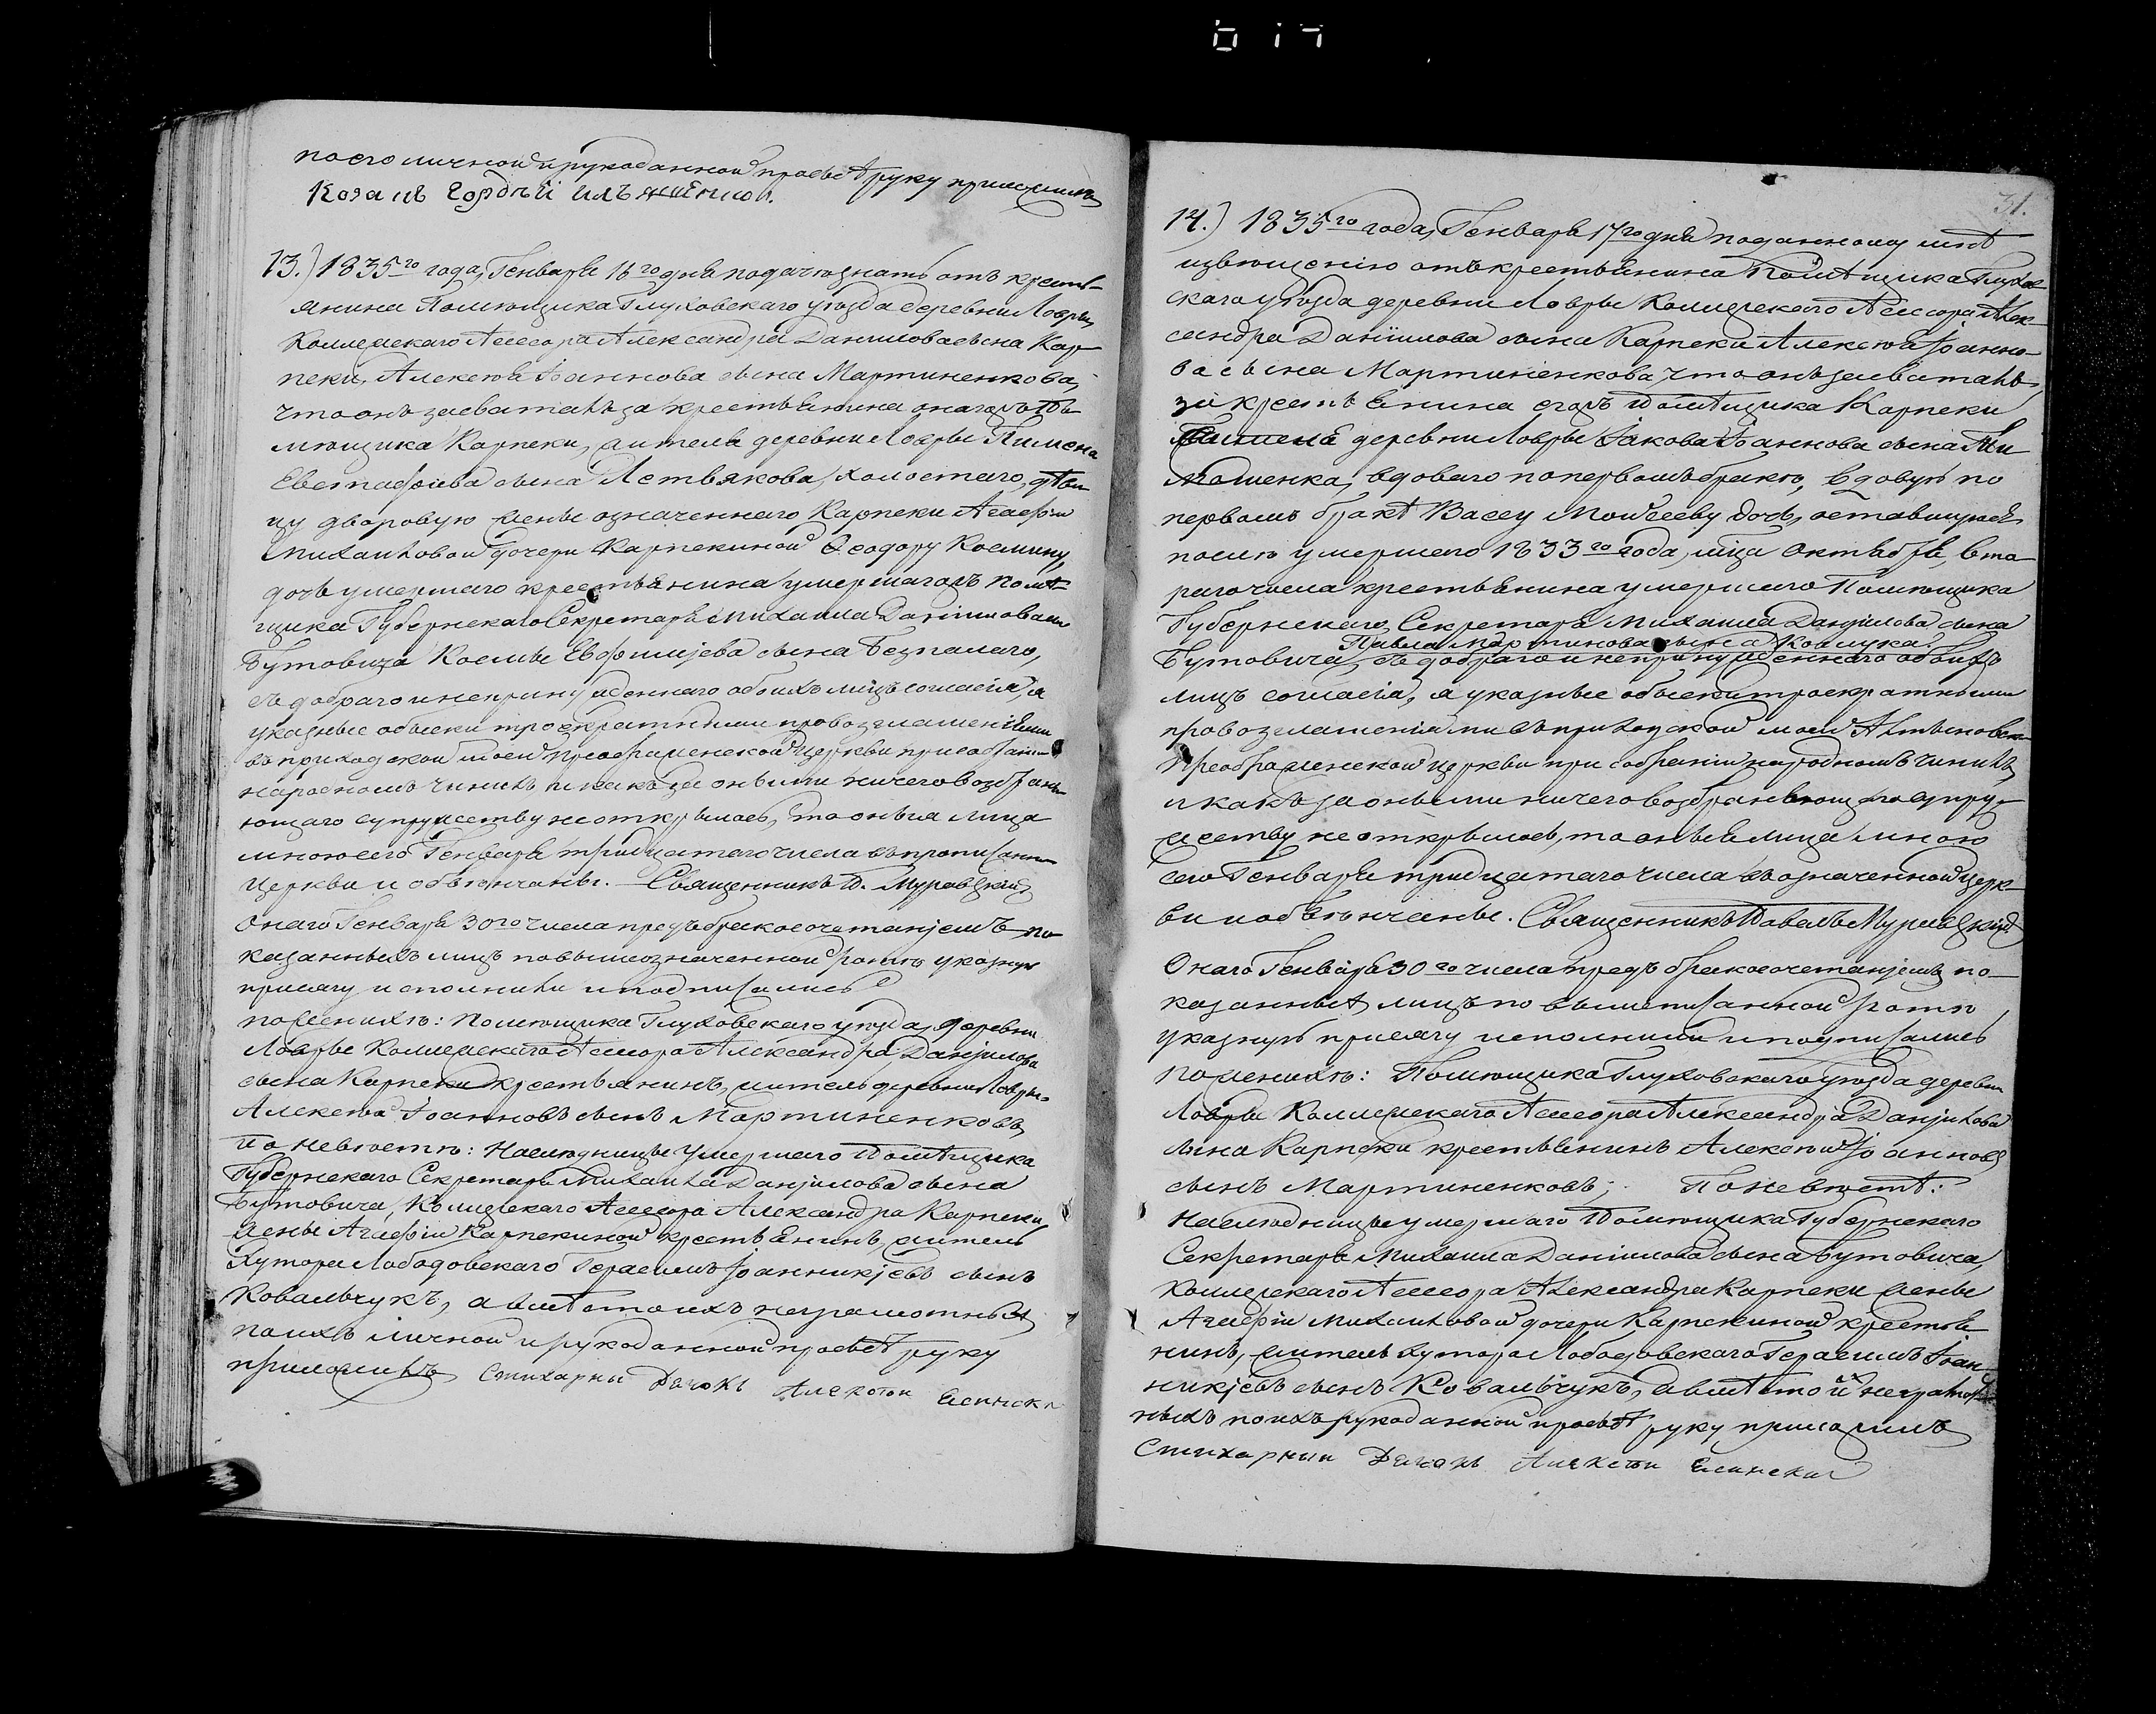 по его личной и рукоданной прозьбѣ руку приложилъ
Козакъ Гордѣй
13.) 1835го года, Генваря 16го дня подачу знать отъ кресть-
янина Помѣщика Глуховскаго уѣзда деревни Лобры,
Коллежскаго Асессора Александра Данилова сына Кар-
пеки, Алексѣя Іоаннова сына Мартиненкова,
что онъ засваталъ за крестьянина онагожъ По-
мѣщика Карпеки, жителя деревни Лобры Пимена
Евстафіева сына Летвякова, холостаго, дѣви-
цу дворовую жены означеннаго Карпеки Агафіи
Михайловой дочери Карпекиной Ѳеодору Космину,
дочь умершаго крестьянина умершагожъ помѣ-
щика Губернскаго Секретаря Михаила Даніилова сына
Бутовича Космы Евфимјева сына Безпалаго,
съ добраго и непринужденнаго обоихъ лицъ согласія, а
указные обыски троекратными провозглашеніями
въ приходской моей Преображенской церкви при собраніи
народномъ чинилъ и какъ за оными ничего возбраня-
ющаго супружеству не открылось, то оныя лица
мною сего Генваря тридцатаго числа въ прописанной
церкви и обвѣнчаны. Священникъ П. Муравскій
Онаго Генваря 30го числа предъ бракосочетанјемъ по-
казанныхъ лицъ по вышеозначенной ротѣ указную
присягу исполнили и подписались
по женихѣ: Помѣщика Глуховскаго уѣзда, деревни
Лобры Коллежскаго Асессора Александра Данјилова
сына Карпеки крестьянинъ, житель деревни Лобры
Алексѣй Іоанновъ сынъ Мартиненковъ,
По невѣстѣ: Наслѣдницы умершаго Помѣщика
Губернскаго Секретаря Михаила Данјилова сына
Бутовича, Коллежскаго Асессора Александра Карпеки
жены Агафіи Карпекиной крестьянинъ, житель
Хутора Лободовскаго Герасимъ Іоанникјевъ сынъ
Ковальчукъ, а вмѣсто ихъ неграмотныхъ
по ихъ личной и рукоданной прозьбѣ руку
приложилъ Стихарный Дьячокъ Алексѣй Есинскій
31.
14.) 1835го года, Генваря 17го дня поданному мнѣ
извѣщенію отъ крестьянина Помѣщика Глухов-
скаго уѣзда деревни Лобры Коллежскаго Асессора Алек-
сандра Даніилова сына Карпеки Алексѣя Іоанно-
ва сына Мартиненкова, что онъ засваталъ,
за крестьянина егожъ Помѣщика Карпеки
деревни Лобры Іакова Іоаннова сына
вдоваго по первомъ бракѣ, вдовую по
первомъ бракѣ Вассу Моисееву дочь, оставшуюся
послѣ умершаго 1833го года, мца Октября, вто-
раго числа крестьянина умершаго Помѣщика
Губернскаго Секретаря Михаила Данјилова сына
Павла Мартинова сына Ковпука
Бутовича, съ добраго и непринужденнаго обоихъ
лицъ согласія, а указные обыски троекратными
провозглашеніями въ приходской моей
Преображенской церкви при собраніи народномъ чинилъ,
и какъ за оными ничего возбраняющаго супру-
жеству не открылось, то оныя лица мною
сего Генваря тридцатаго числа въ означенной церк-
ви и обвѣнчаны. Священникъ Павелъ Муравскій
Онаго Генваря 30го числа предъ бракосочетанјемъ по-
казанныхъ лицъ по вышеписанной ротѣ
указную присягу исполнили и подписались
по женихѣ: Помѣщика Глуховскаго уѣзда деревни
Лобры Коллежскаго Асессора Александра Данјилова
сына Карпеки крестьянинъ Алексѣй Іоанновъ
сынъ Мартиненковъ; По невѣстѣ:
Наслѣдницы умершаго Помѣщика Губернскаго
Секретаря Михаила Даніилова сына Бутовича,
Коллежскаго Асессора Александра Карпеки жены
Агафіи Михайловой дочери Карпекиной крестья-
нинъ, житель хутора Лободовскаго Герасимъ Іоан-
никјевъ сынъ Ковальчукъ, а вмѣсто ихъ неграмот-
ныхъ по ихъ рукоданной прозьбѣ руку приложилъ
Стихарный Дьячокъ Алексѣй Есинскій